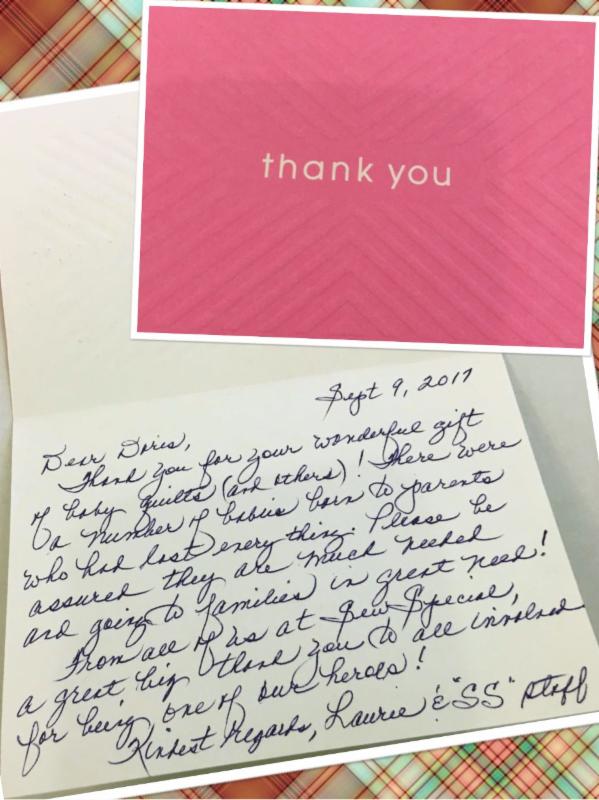 thank you
Sept 9, 2017
Dear Doris,
Thank you for your wonderful gift
of baby quilts (and others)! There were
a number of babies born to parents
who had lost every thing. Please be
assured they are much needed
and going to families in great need!
From all of us at Sew Special,
a great, big thank you to all involved
for being one of our heroes!
Kindest Regards, Laurie & "SS" staff